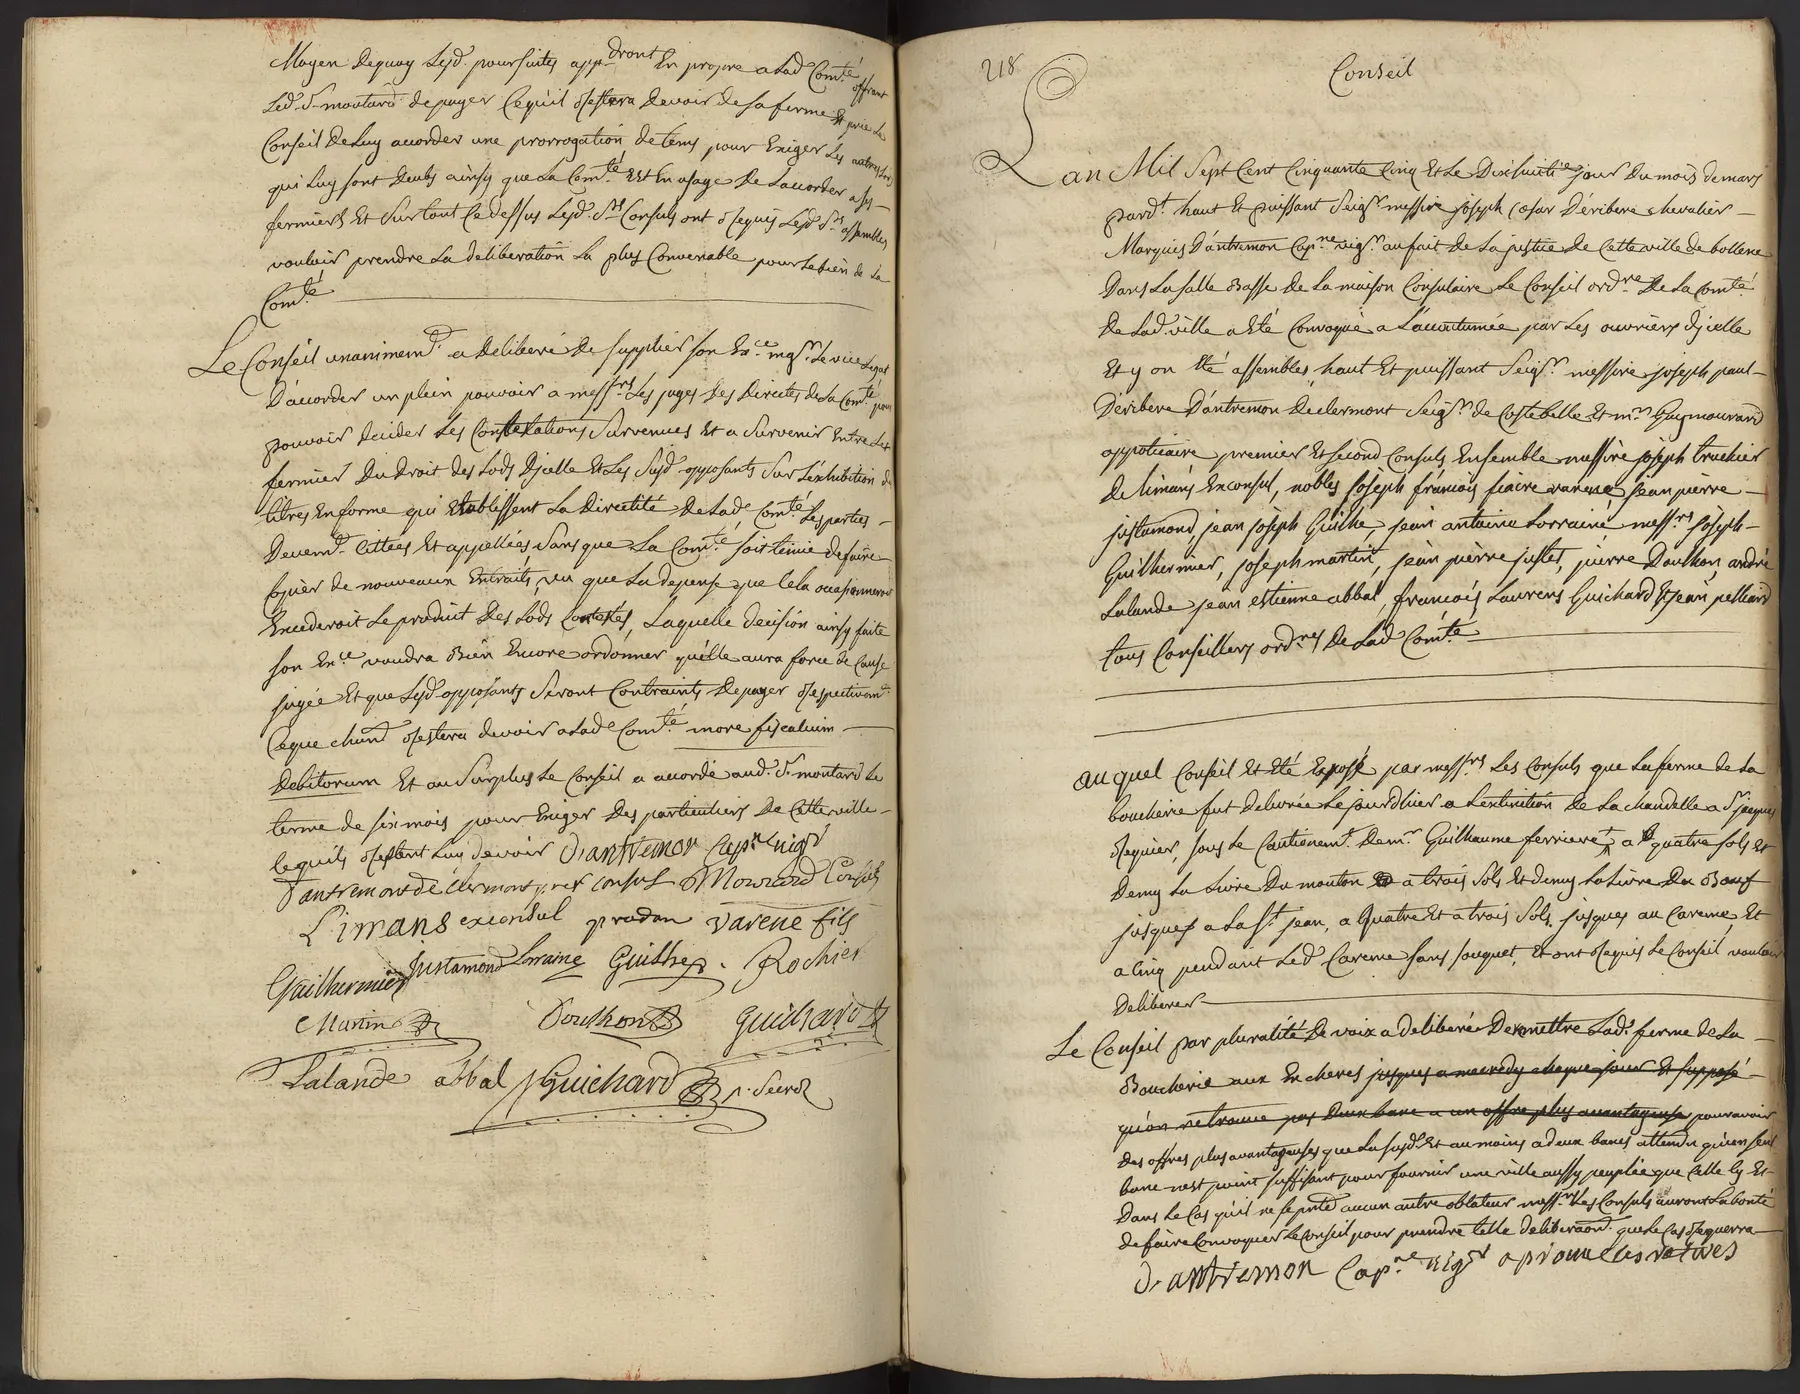 Moyen dequoy Lesd. poursuites appdront En propre a Lad. Com.té offrant
Led. S.r moutard de payer Ce qu'il Restera devoir de sa ferme Et prie Le
Conseil De Luy accorder une prorrogation de tems pour Exiger Les
qui Luy sont deubs ainsy que La Com.té Est En usage De Laccorder a ses
fermiers Et Sur tout Ce dessus Lesd. S.rs Consuls ont Requis Lesd. S.rs assembles
vouloir prendre La deliberation La plus Convenable pour Le bien de La
Com.té
Le Conseil unanimem.t a deliberé De supplier son Ex.ce mgr. Le vice Legat
D'accorder un plein pouvoir a mess.rs Les juges Des Directes de La Com.té pour
pouvoir decider Les Contestations Survenues Et a Survenir Entre Les
fermier Du Droit des Lods D'jcelle Et Les Susd. opposants Sur L'exhibition de
titres En forme qui Etablissent La Directité De Lad.e Com.té Les parties
Deuem.t Cittées Et appellées, Sans que La Com.té soit tenüe de faire
Copier de nouveaux Extraits, veu que La depense que Cela occasionneroit
Excederoit Le produit Des Lods Contestés, Laquelle decision ainsy faite
son Ex.ce voudra Bien Encore ordonner qu'elle aura force de Cause
jugée Et que Lesd. opposants Seront Contraints De payer Respectivem.t
Ce que chacun Restera devoir a Lad.e Com.té more fiscalium
Debitorum Et au Surplus Le Conseil a accordé aud. S.r moutard Le
terme de six mois pour Exiger Des particuliers De Cette ville
Ce qu'ils Restent Luy devoir D'antremon Cap.ne vig.r
D'antremon de clermont p.er consul Mourard Consul
Limans exconsul pradan varene fils
Guilhermier Justamond Lorraine Guilhe Rochier
Martin Douthon Guichard
Lalande abbal Guichard Secr.
218
Conseil
Lan Mil Sept Cent Cinquante Cinq Et Le Dixhuitie jour du mois de mars
pard.t haut Et puissant Seig.r messire joseph Cesar D'eribere chevalier
Marquis D'antremon Cap.ne vig.r au fait de La justice de Cette ville de bollene
Dans La salle Basse de La maison Consulaire Le Conseil ord.re De La Com.té
De Lad. ville a Eté Convoqué a L'acoutumée par Les ouvriers D'jcelle
Et y on Eté assembles, haut Et puissant Seig.r messire joseph paul
D'eribere D'antremon De clermont Seig.r de Costebelle Et m.r Guy mourard
appoticaire premier Et Second Consuls Ensemble messire joseph truchier
De limans Exconsul, nobles joseph francois fiacre varene jean pierre
justamond, jean joseph Guilhe, jean antoine Lorraine mess.rs joseph
Guilhermier, joseph martin, jean pierre justet, pierre Douthon, andré
Lalande jean estienne abbal, francois Laurens Guichard Et jean pelliard
tous Conseillers ord.res De Lad. Com.té
au quel Conseil Et Eté Exposé par mess.rs Les Consuls que La ferme de La
boucherie fut delivrée Le jourd'hier a L'extinction De La chandelle a S.r jaques
Requier, sous Le Cautionem.t De m.r Guilhaume ferriere a quatre sols Et
Demy La Livre Du mouton a trois Sols Et demy La Livre Du Bœuf
jusques a La St. jean, a Quatre Et a trois Sols jusques au Careme, Et
a Cinq pendant Led. Careme sans souquet, Et ont Requis Le Conseil vouloir
Deliberer
Le Conseil par pluralité De voix a deliberé De remettre Lad. ferme de La
Boucherie aux Encheres jusques a mecredy chaque jour Et supposé
qu'on ne trouve pas Deux banc a un offre plus avantageuse pour avoir
Des offres plus avantageuses que La susd. Et au moins a deux bancs attendu qu'un seul
banc n'est point suffisant pour fournir une ville aussy peuplée que Celle Cy Et
Dans Le Cas qu'il ne se pnté aucun autre oblateur mess.rs Les Consuls auront La bonté
de faire Convoquer Le Conseil pour prendre telle deliberaon. que Le Cas Requerra
D'antremon Cap.ne vig.r aprouve les ratures